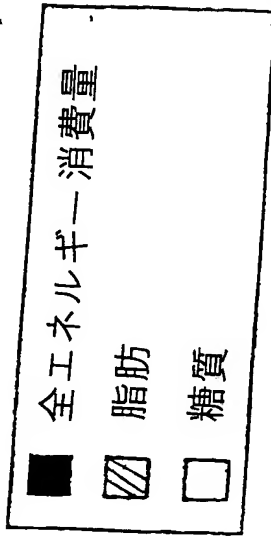 全エネルギー消費量
脂肪
糖質